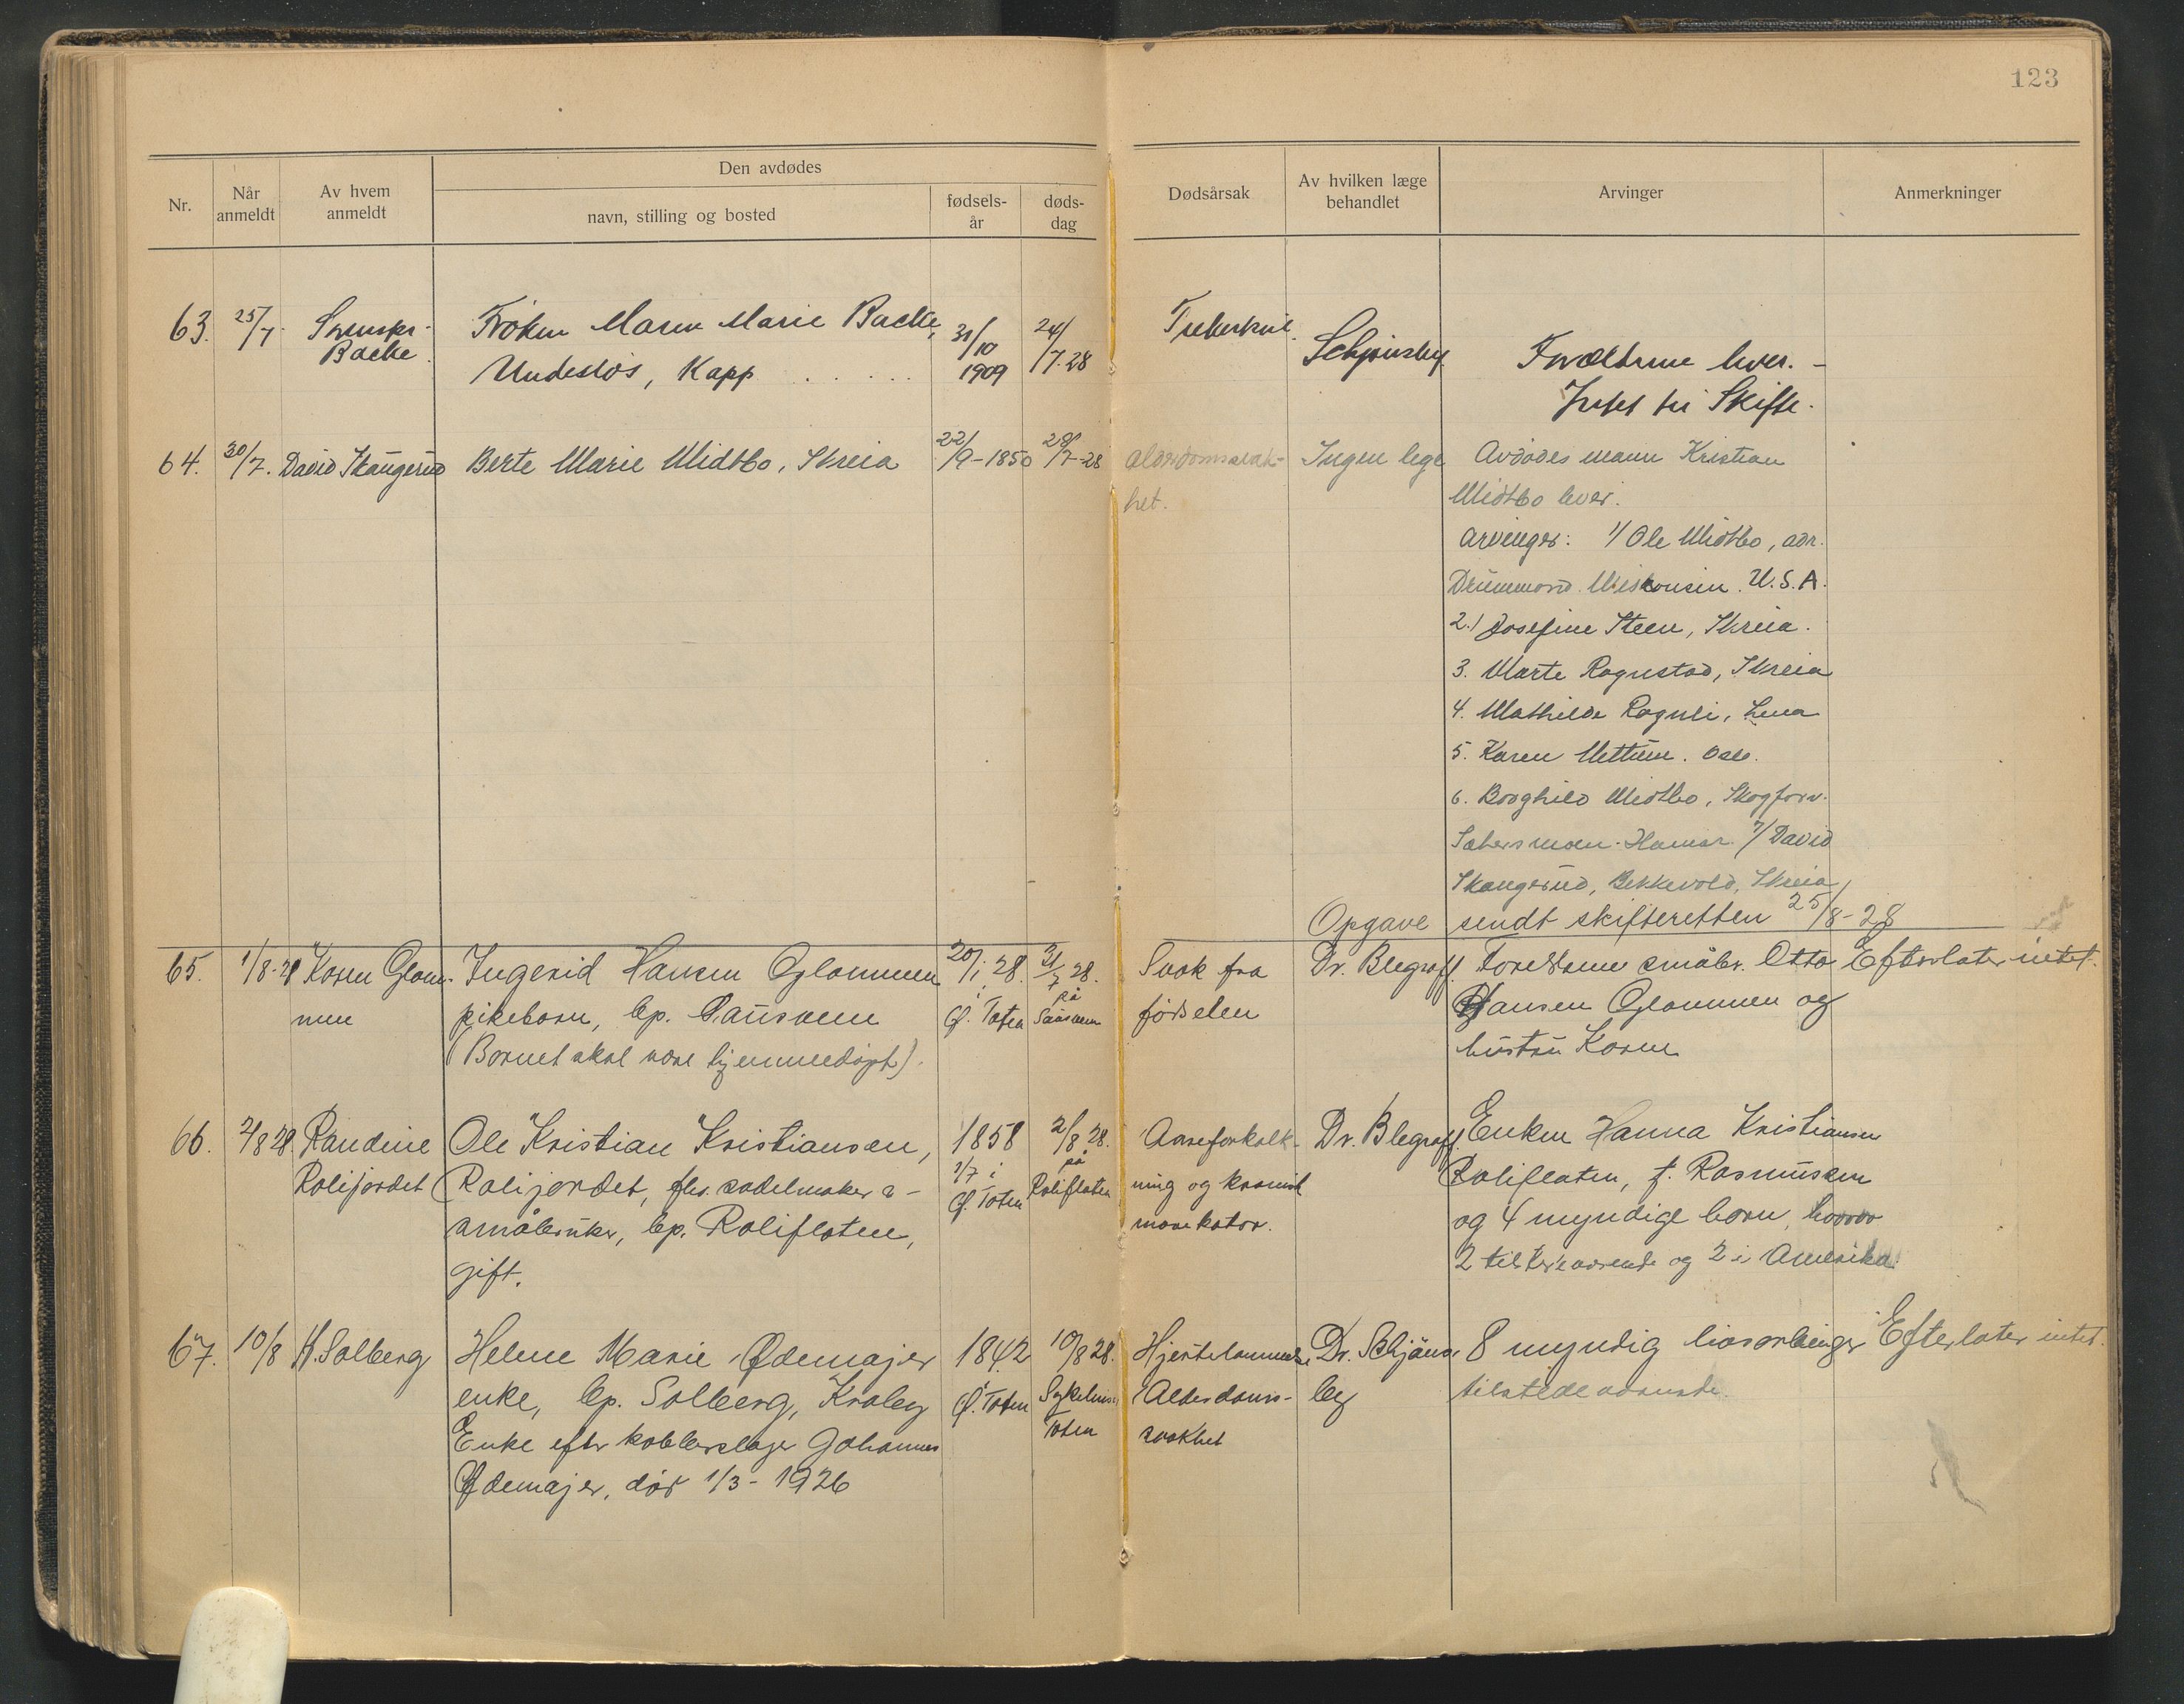 123
Nr.
Når anmeldt
Av hvem anmeldt
Den avdødes
navn, stilling og bosted
fødsels-år
døds-dag
Dødsårsak
Av hvilken læge behandlet
Arvinger
Anmerkninger
63. 25/7 Backe
Frøken Maren Marie Backe,
Undeslös, Kapp
31/10 1909
24/7. 28
Foreldrene lever. -
Intet til Skifte.
64. 30/7. David Skaugerud Berte Marie Midtbo, Skreia 22/9-1850 28/7-28
alderdomssvak-
het.
Ingen lege
Avdødes mann Kristian
Midtbo lever.
Arvinger: 1/ Ole Midtbo, adr.
Drummond. Wiskonsin. U.S.A.
2./ Josefine Steen, Skreia.
3. Marte Rognstad, Skreia
4. Mathilde Rognli, Lena
5. Karen Mettum. Oslo.
6. Borghild Midtbo, Skogforv.
Sætersmoen. Hamar. 7/ David
Skaugerud, Bekkevold, Skreia
Opgave sendt skifteretten 25/8-28
65. 1/8-28 Karen Glom-
men
Ingerid Hansen Glommen
pikebarn, bp. Sausvem
(Barnet skal være hjemmedøpt).
20/1 28.
Ø. Toten
31/7 28.
på
Svak fra
fødselen
Dr. Blegraff
Foreldrene småbr. Otto
Hansen Glommen og
hustru Karen
Efterlater intet.
66. 2/8 28. Randine
Rolijordet
Ole Kristian Kristiansen,
Rolijordet, fhv. sadelmaker o-
småbruker, bp. Roliflaten,
gift.
1858
1/7 i
Ø. Toten
2/8 28.
på
Roliflaten
Aareforkalk-
ning og kronisk
mavekatar.
Dr. Blegraff.
Enken Hanna Kristiansen
Roliflaten, f. Rasmussen
og 4 myndige barn, hvorav
2 tilstedeværende og 2 i Amerika.
67. 10/8 H. Solberg
Helene Marie Ødemajer
enke, bp. Solberg, Kraby
Enke efter kobberslager Johannes
Ødemajer, død 1/3-1926
1842
Ø. Toten
10/8 28.
Sykehus
Toten
Hjertelammelse
Alderdoms-
svakhet
Dr. Schjäns-
by
8 myndig livsarvinger
tilstedeværende.
Efterlater intet.